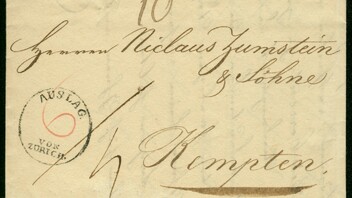 10
Herren Niclaus Zumstein
& Söhne
AUSLAG.
6
VON
ZÜRICH.
Kempten.